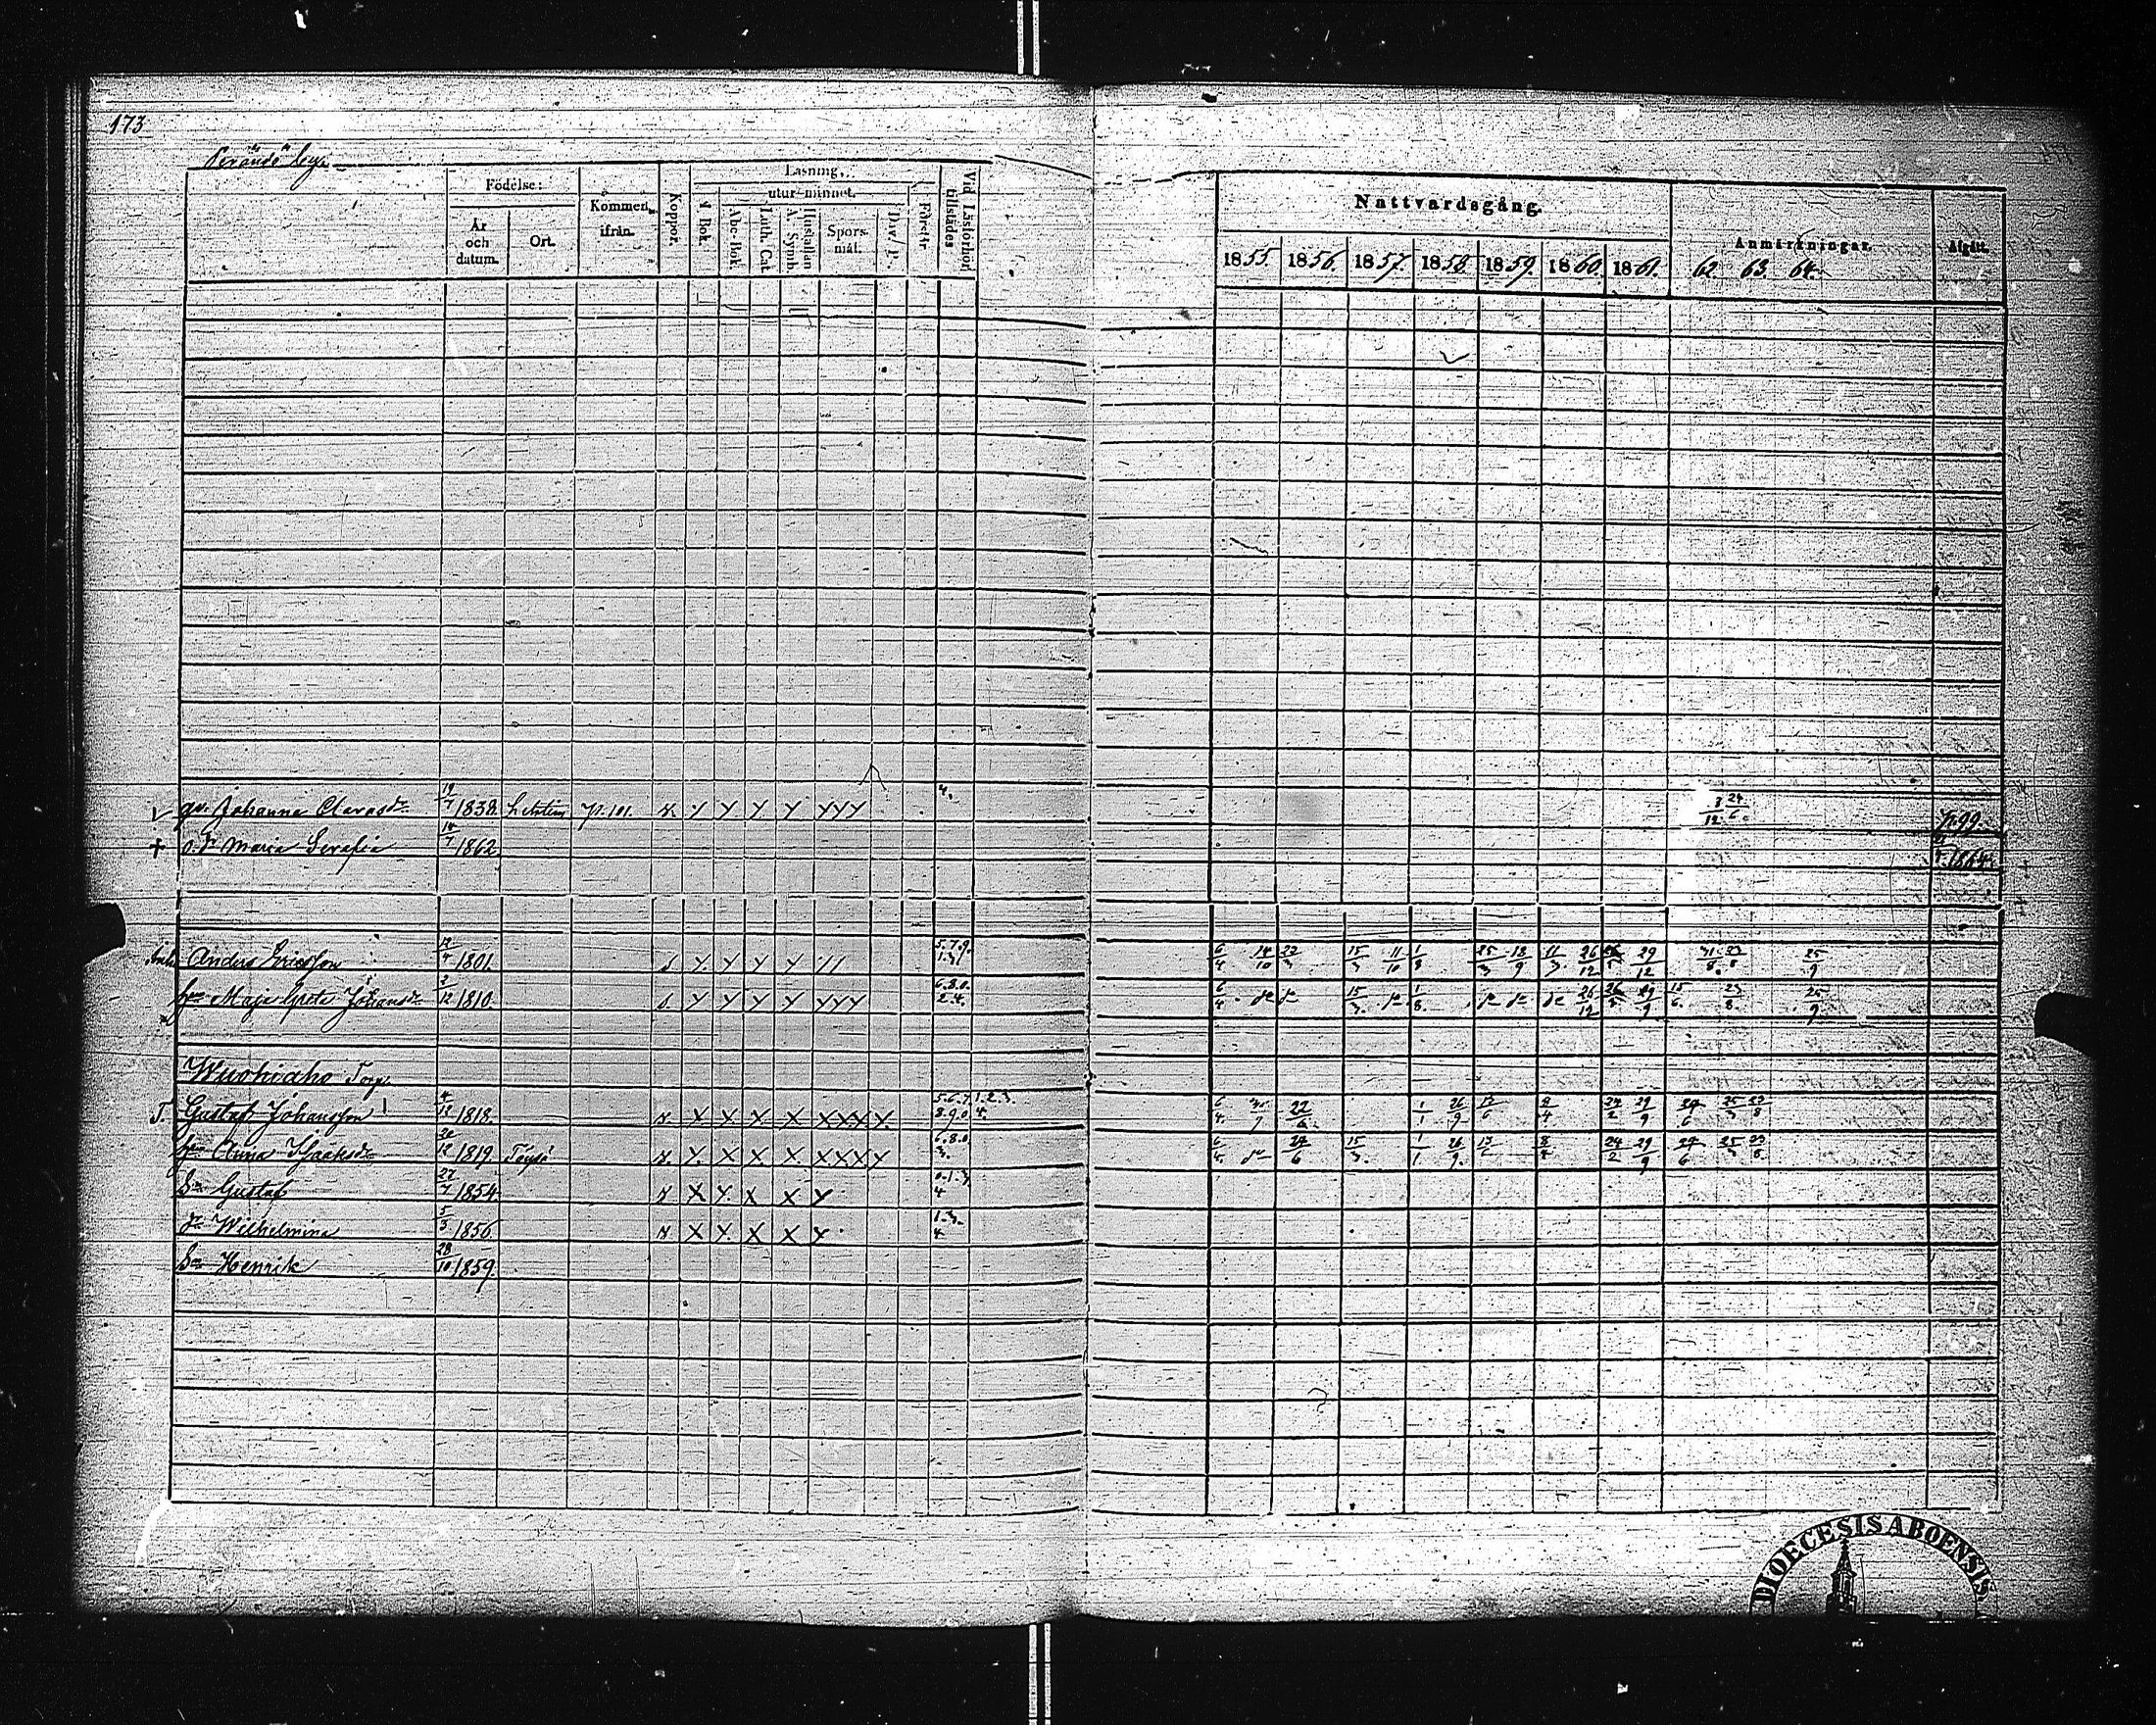 173
Peränds by.
Födelse:
År och datum.
Ort.
Kommen ifrån.
Koppor.
Läsning,
i Bok.
utur minnet.
Abc-Bok
Luth. Cat.
Hustaflan A. Symb.
Spors-mål.
Dav. p.
Förestår
Vid Läsförhör tillstädes
Nattvardsgång.
1855. 1856. 1857. 1858. 1859. 1860. 1861.
Anmärkningar.
62. 63. 64.
Afgått.
qv. Johanna 19/7 1838. p. 101. x y y y y yyy 4. 8/12 24/6. p. 99.
o.dr Maria Serafia 14/7 1862 1864.
Anders Ericsson 12/4 1801. y y y y 11 5.7.9. 1.3. 6/4 14/10 22/3 15/3 11/10 1/8 25/3 18/9 11/3 26/12 29/12 23/8 25/9
hu Maja Greta Johansdr 2/12 1810. y y y y yyy 6.8.0. 2.4. 6/4 do do 15/3 do 1/8 do do do 26/12 26/5 29/9 15/6. 23/8 25/9
Wuohiaho Torp.
T. Gustaf Johansson 4/12 1818. x x x x x xxxx 5.6.7. 8.9.0. 1.2.3. 4. 6/4 22/6 1/1 26/9 13/6 8/4 24/2 29/9 29/6 25/3 23/8
hu Anna Isaaksdr 20/12 1819 Töysö x. y. x x. x xxxy 6.8.0. 3. 6/4 do 22/6 15/3. 1/1 26/9. 13/6 8/4 24/2 29/9 29/6 25/3 23/8
Sn Gustaf 27/7 1854. x x y. x x y 0.1.3. 4
dr Wilhelmina 5/3 1856. x x y. x x y 1.3. 4
Sn Henrik 28/10 1859.
DIOECESIS ABOENSIS